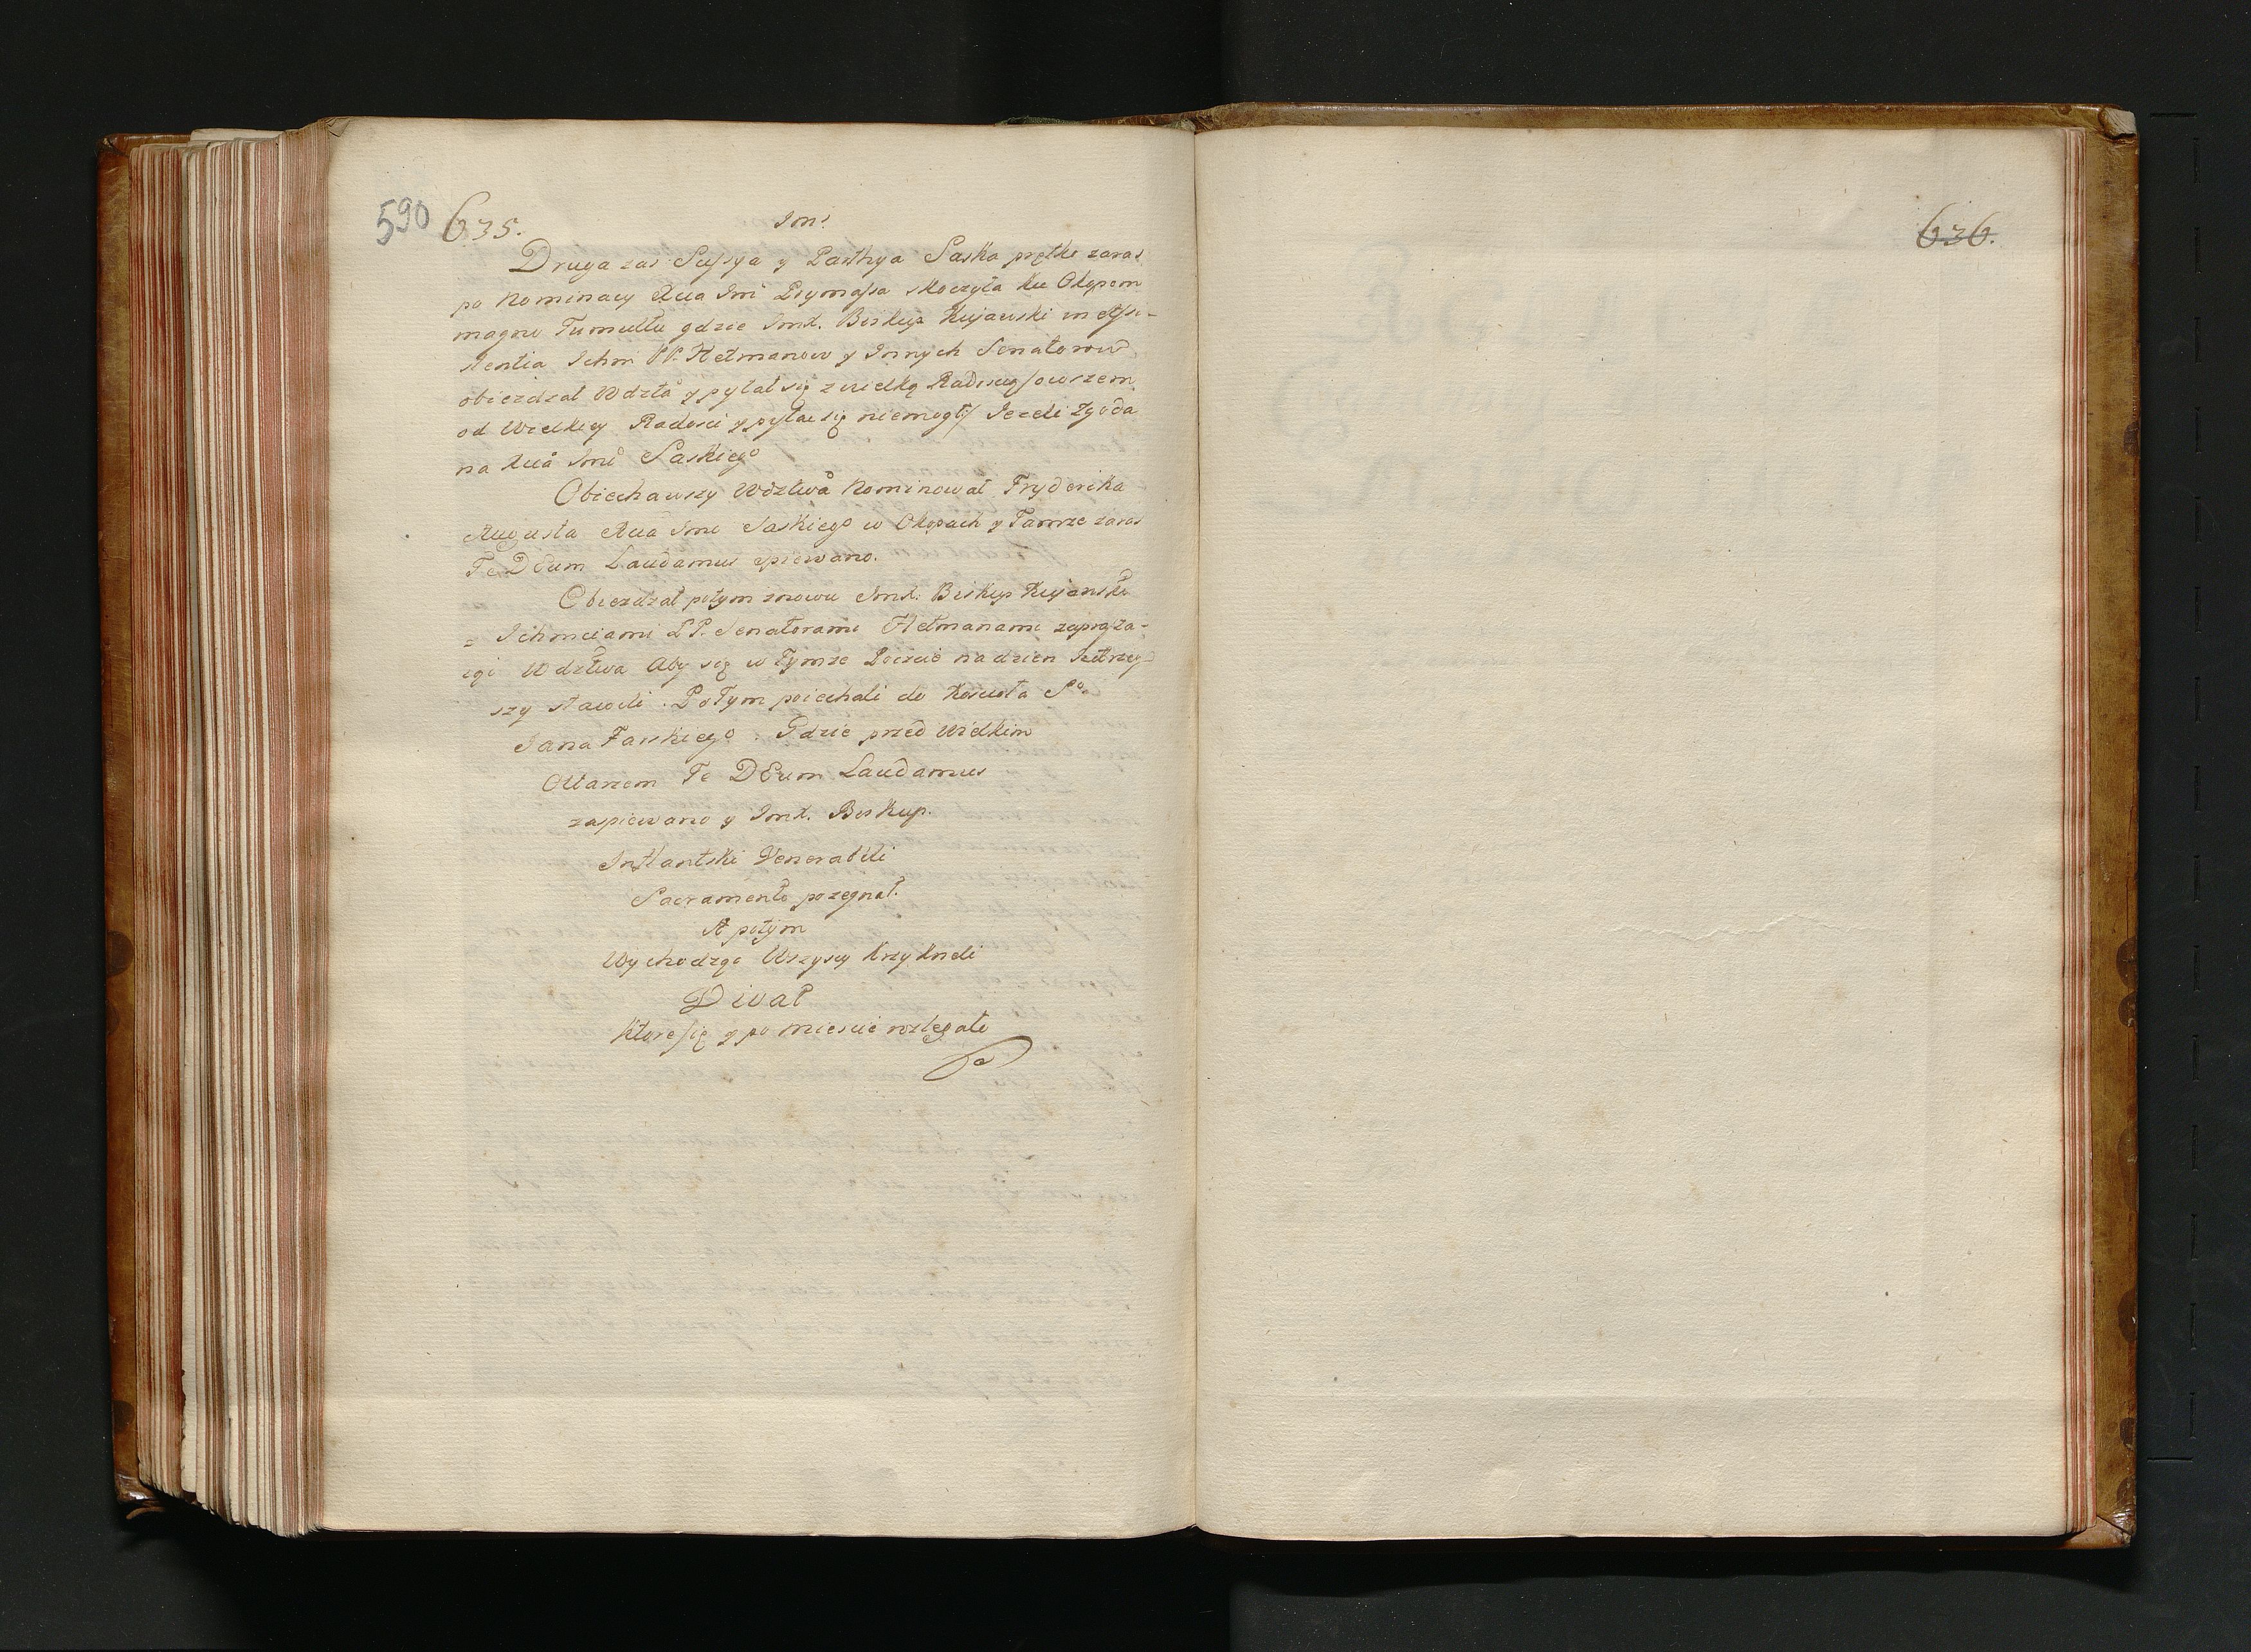 590 635. Im:
Druga zas Sessya y Parthya Saska prętko zaras
po Nominacy Xcia Jmi Prymassa skoczyła ku Okopom
magno Tumultu gdzie Jmd. Biskup Kujawski in Assi-
stentia Ichm PP. Hetmanow y Innych Senatorow
obiezdzał Wdztẃa y pytał się z wielką Radoscy/owszem
od Wielkiey Radosci y pytac się niemogł/ Jezeli Zgoda
na Xcia Jmci Saskiego
Obiechawszy Wdztwa Nominował Fryderika
Augusta Xcia Jmci Saskiego w Okopach y Tamze zaras
Te Deum Laudamus spiewano.
Obiezdzał potym znowu Jmd. Biskup Kujawski
z Ichmciami PP. Senatorami Hetmanami zaprasza-
iąc Wdztwa Aby się w Tymze Poczcie na dzien Jutrzey
szy stawili. Potym poiechali do Kosciola So.
Jana Farskiego. Gdzie przed Wielkim
Ołtarzem Te DEum Laudamus
zaspiewano y Jmd. Biskup.
Inflantski Venerabili
Sacramento pozegnał.
A potym
Wychodząc Wszyscy Krzyknęli
Vivat
Ktore się y po Miescie rozlegało
636.